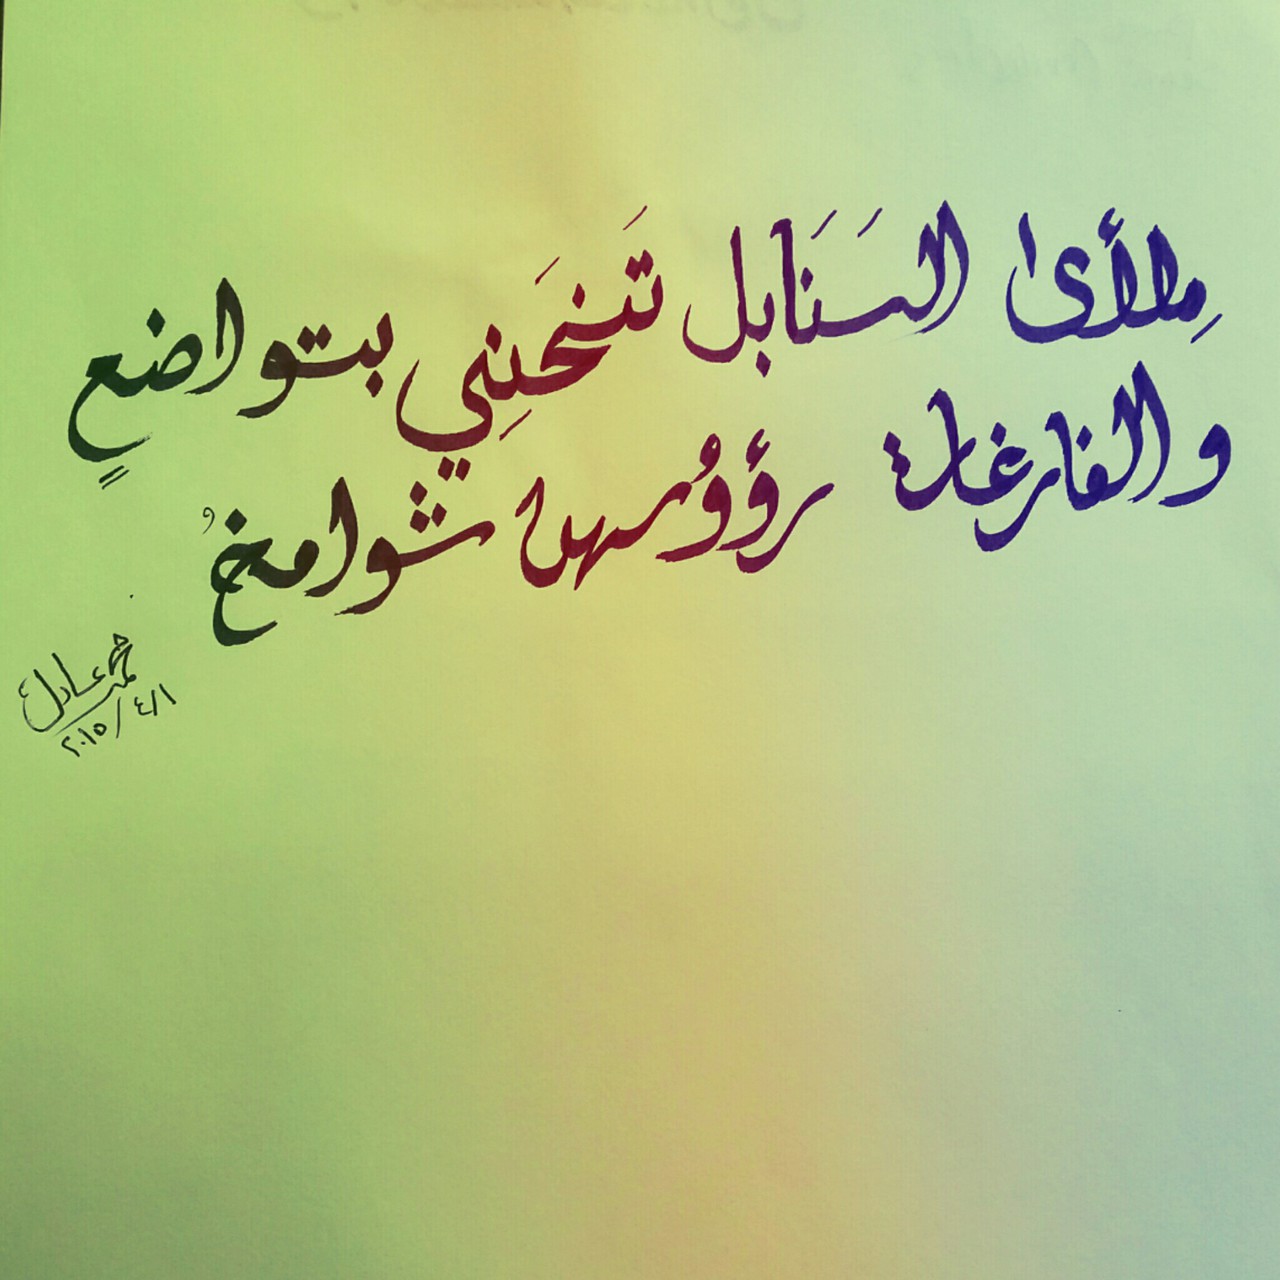 مِلأى السَنَابل تَنحَنِي بتواضعٍ
والفارغات رؤوُسهن شوامخُ
محمد عادل
٢٠١٥/٤/١